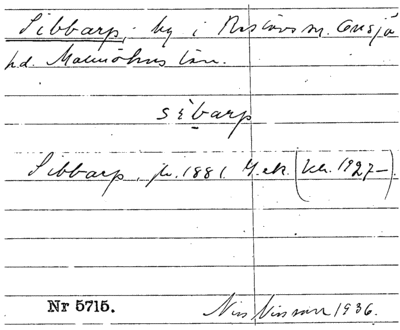 Sibbarp, by i Röstånga sn. Onsjö
hd. Malmöhus län.
sìbarp
Sibbarp, fr. 1881 G.ek. (Kbr. 1927–).
Nr 5715.
Nils Nilsson 1936.